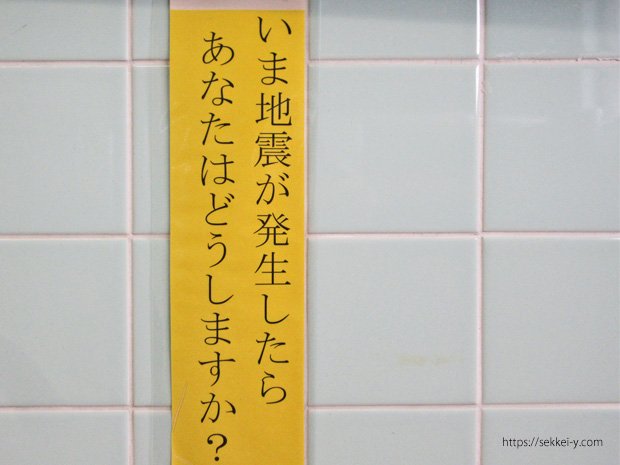 いま地震が発生したら
あなたはどうしますか？
https://sekkei-y.com